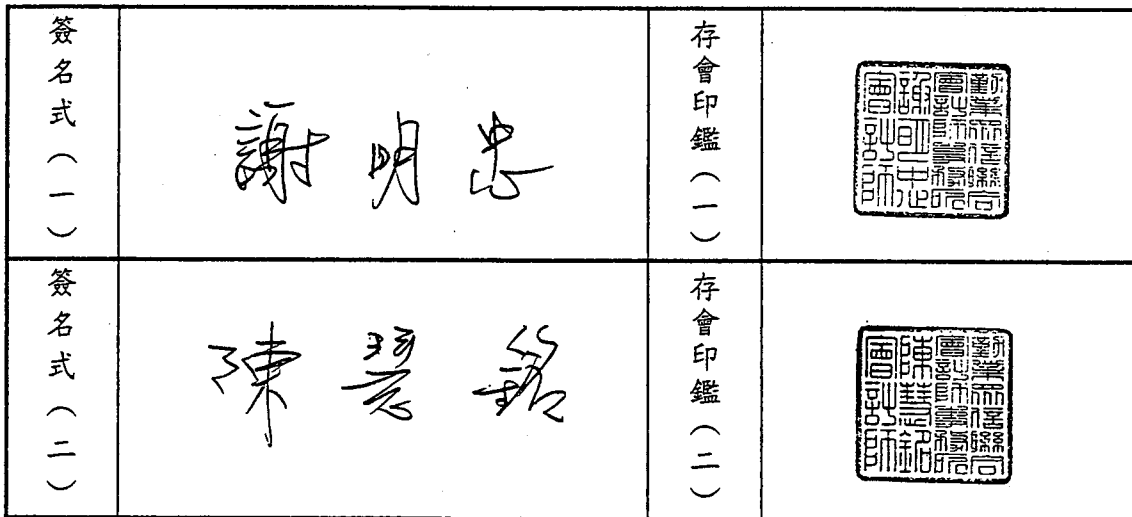 簽名式（一）
謝明忠
存會印鑑（一）
勤業眾信聯合
會計師事務所
謝明忠
會計師
簽名式（二）
陳慧銘
存會印鑑（二）
勤業眾信聯合
會計師事務所
陳慧銘
會計師